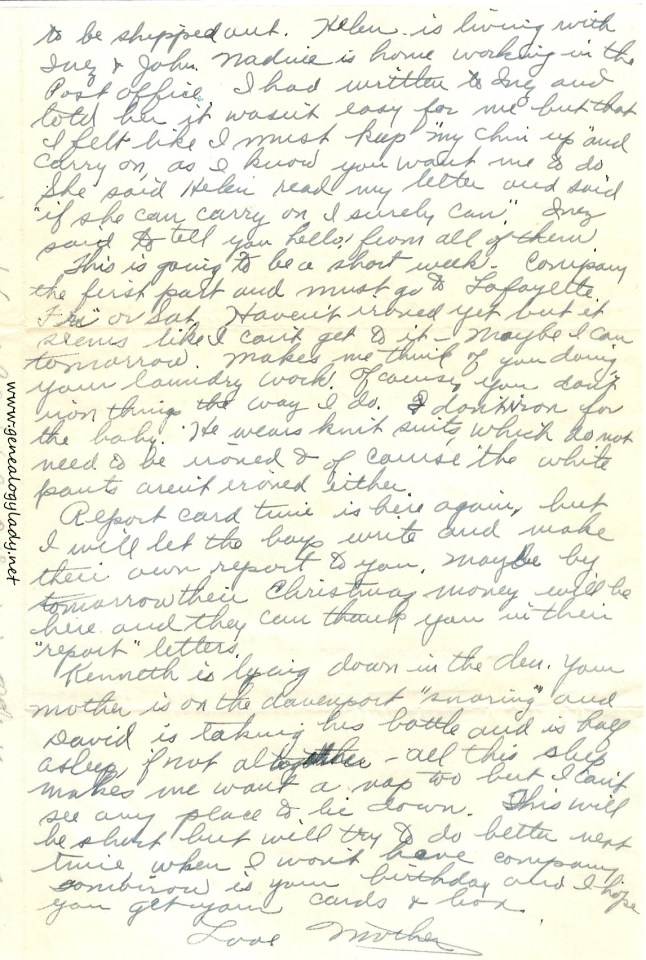 to be shipped out. Helen is living with
Inez & John. Nadine is home working in the
Post office. I had written to Inez and
told her it wasn't easy for me but that
I felt like I must keep "my chin up" and
carry on, as I know you want me to do
She said Helen read my letter and said
"if she can carry on I surely can." Inez
said to tell you hello from all of them
This is going to be a short week. Company
the first part and must go to Lafayette
Fri or Sat. Haven't ironed yet but it
seems like I can't get to it - Maybe I can
tomorrow. Makes me think of you doing
your laundry work. Of course, you don't
iron things the way I do. I don't iron for
the baby. He wears knit suits, which do not
need to be ironed & of cause the white
pants aren't ironed either.
Report card time is here again, but
I will let the boys write and make
their own report to you. Maybe by
tomorrow their Christmas money will be
here and they can thank you in their
"report" letters.
Kenneth is lying down in the den. Your
mother is on the davenport "snoring" and
David is taking his bottle and is half
asleep if not altogether - all this sleep
makes me want a nap too but I can't
see any place to lie down. This will
be short but will try to do better next
time when I won't have company
tomorrow is your birthday and I hope
you get your cards & box.
Love Mother
www.genealogylady.net